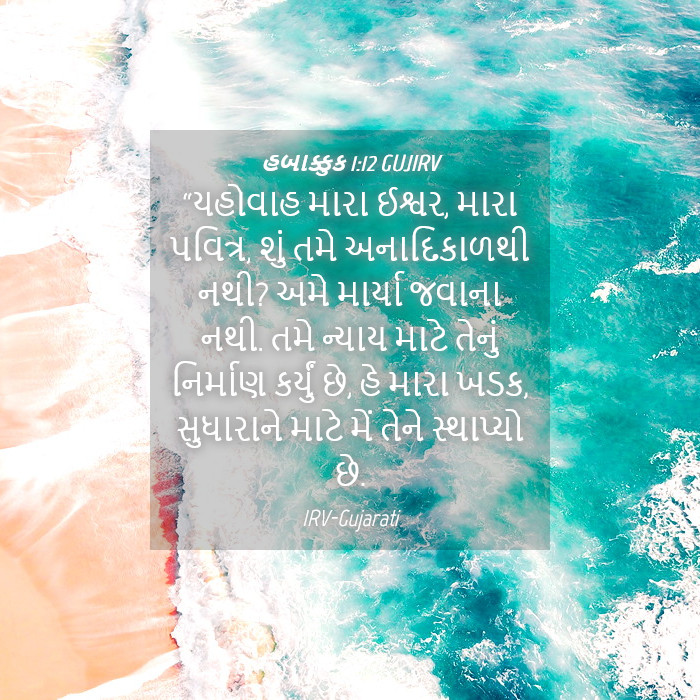 હબાક્કુક 1:12 GUJIRV
“યહોવાહ મારા ઈશ્વર, મારા
પવિત્ર, શું તમે અનાદિકાળથી
નથી? અમે માર્યા જવાના
નથી. તમે ન્યાય માટે તેનું
નિર્માણ કર્યું છે, હે મારા ખડક,
સુધારાને માટે મેં તેને સ્થાપ્યો
છે.
IRV-Gujarati